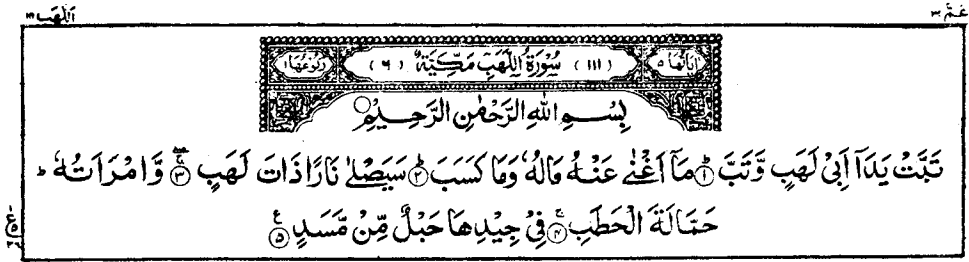 عَمَّ ٣٠ اَللَّهَب ١١١
اٰيَاتُهَا ٥ (١١١) سُوْرَةُ اللَّهَبِ مَكِّيَّةٌ (٦) رُكُوْعُهَا ١
بِسْمِ اللهِ الرَّحْمٰنِ الرَّحِيْمِ
تَبَّتْ يَدَآ اَبِيْ لَهَبٍ وَّتَبَّ ؕ ﴿١﴾ مَآ اَغْنٰى عَنْهُ مَالُهٗ وَمَا كَسَبَ ؕ ﴿٢﴾ سَيَصْلٰى نَارًا ذَاتَ لَهَبٍ ۚ ﴿٣﴾ وَّامْرَاَتُهٗ ؕ
حَمَّالَةَ الْحَطَبِ ۚ ﴿٤﴾ فِيْ جِيْدِهَا حَبْلٌ مِّنْ مَّسَدٍ ﴿٥﴾